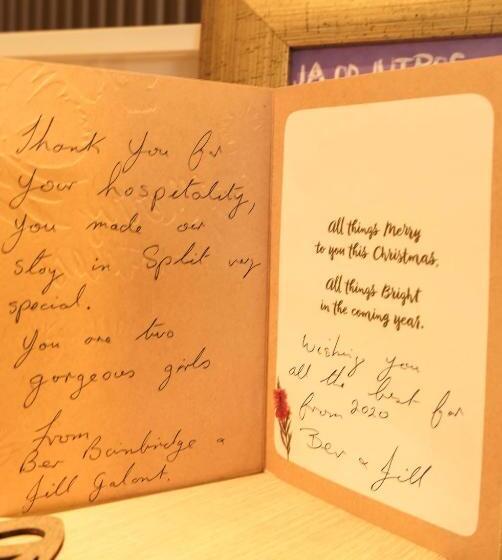 Thank you for
your hospetality,
you made our
stay in Split very
special.
You are two
gorgeous girls
from
Bev Bainbridge &
Jill Galant.
All things Merry
to you this Christmas,
All things Bright
in the coming year.
Wishing you
all the best for
from 2020
Bev & Jill